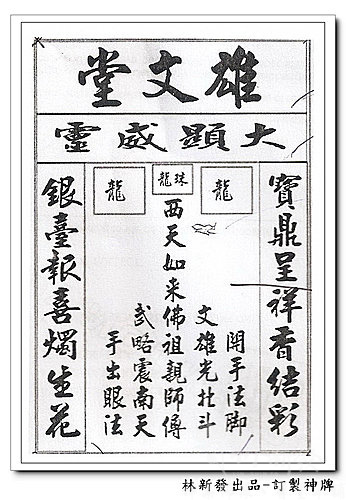 雄文堂
大顯威靈
寶鼎呈祥香結彩
龍
開手法脚
文雄光北斗
珠龍
西天如来佛祖親師傅
龍
武略震南天
手出眼法
銀臺報喜燭生花
林新發出品-訂製神牌